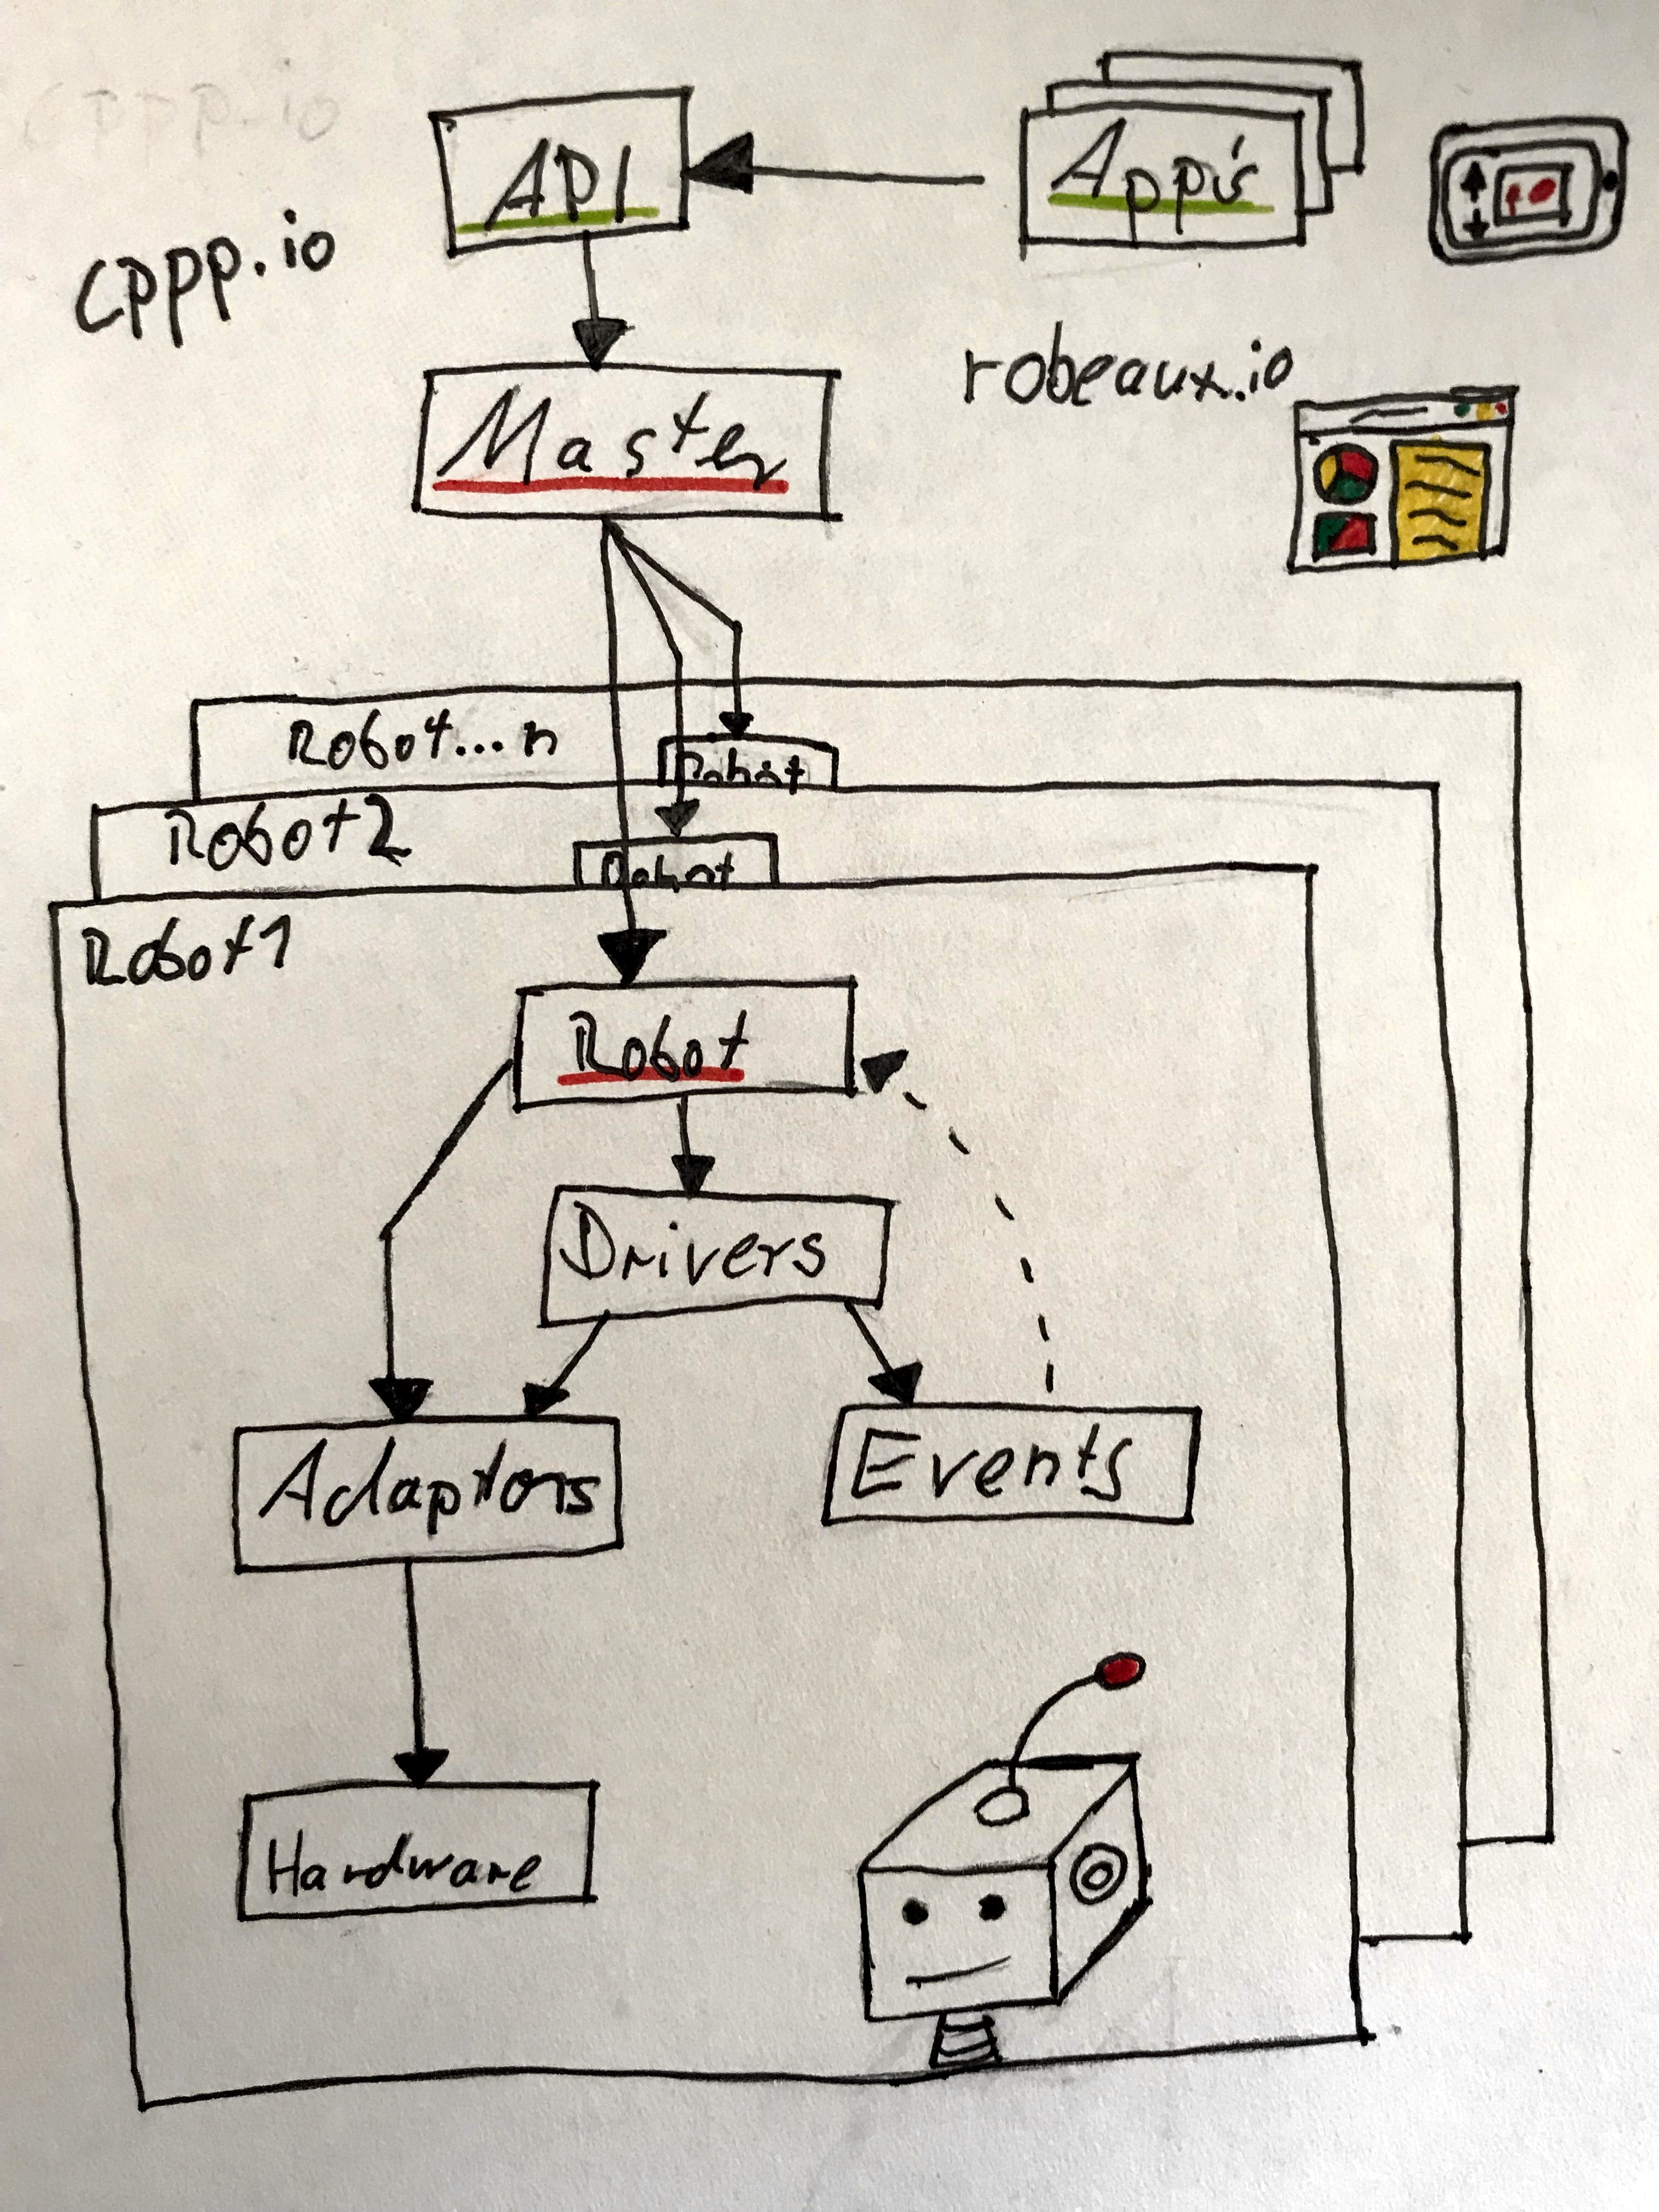 cppp.io
API
App's
cppp.io
robeaux.io
Master
Robot...n
Robot
Robot2
Robot
Robot1
Robot
Drivers
Adaptors
Events
Hardware